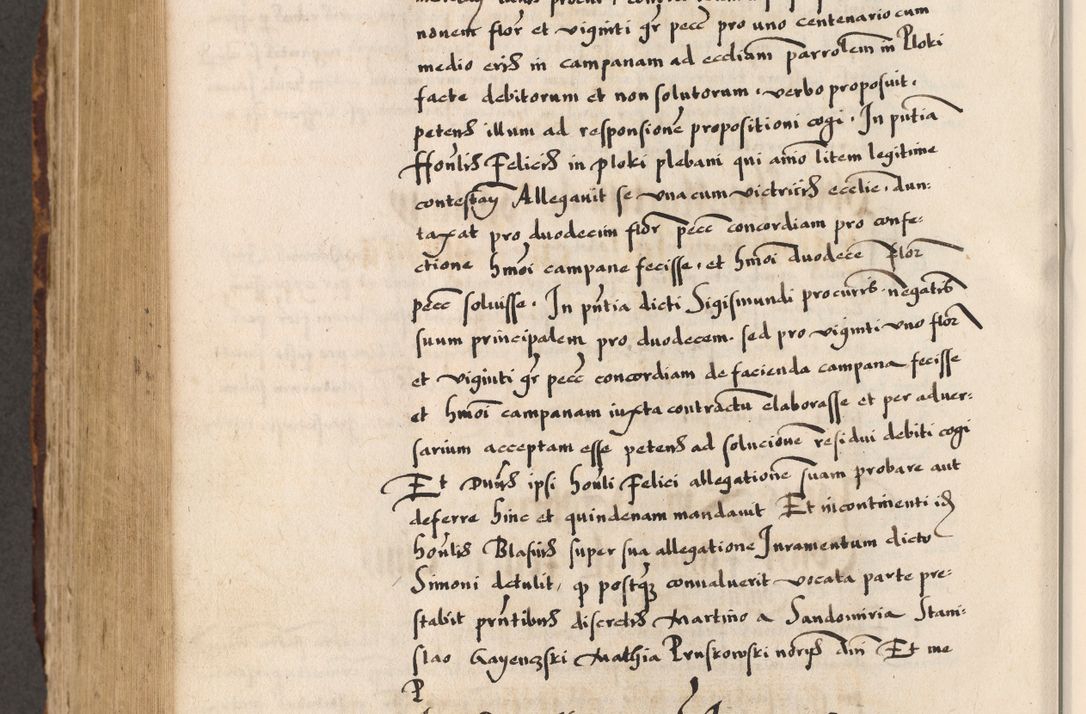 novem flor et viginti gr pecc pro uno centenario cum
medio eris in campanam ad eccliam parrolem in Ploki
facte debitorum et non solutorum, verbo proposuit,
petens illum ad responsione propositioni cogi. In pntia
Honlis Felicis in Ploki plebani qui aio litem legitime
contestan Allegavit se una cum victricis ecclie, dun:
taxat pro duodecim flor pecc concordiam pro confe:
ctione hmoi campane fecisse, et hmoi duodece flor
pecc solvisse. In pntia dicti Sigismundi procuris negatis
suum principalem pro duodecem. sed pro viginti uno flor
et viginti gr pecc concordiam de facienda campana fecisse
et hmoi campanam iuxta contractu elaborasse et per adver:
sarium acceptam esse petens ad solucione residui debiti cogi
Et Duns ipsi honli Felici allegatione suam probare aut
deferre hinc et quindenam mandavit Et incontinenti id
honlis Blasius super sua allegatione Iuramentum dicto
Simoni detulit, qp postqz convaluerit vocata parte pre:
stabit prntibus discretis Martino a Sandomiria Stani:
slao Gayenczski Mathia Pruskowski noriis dni Et me
P